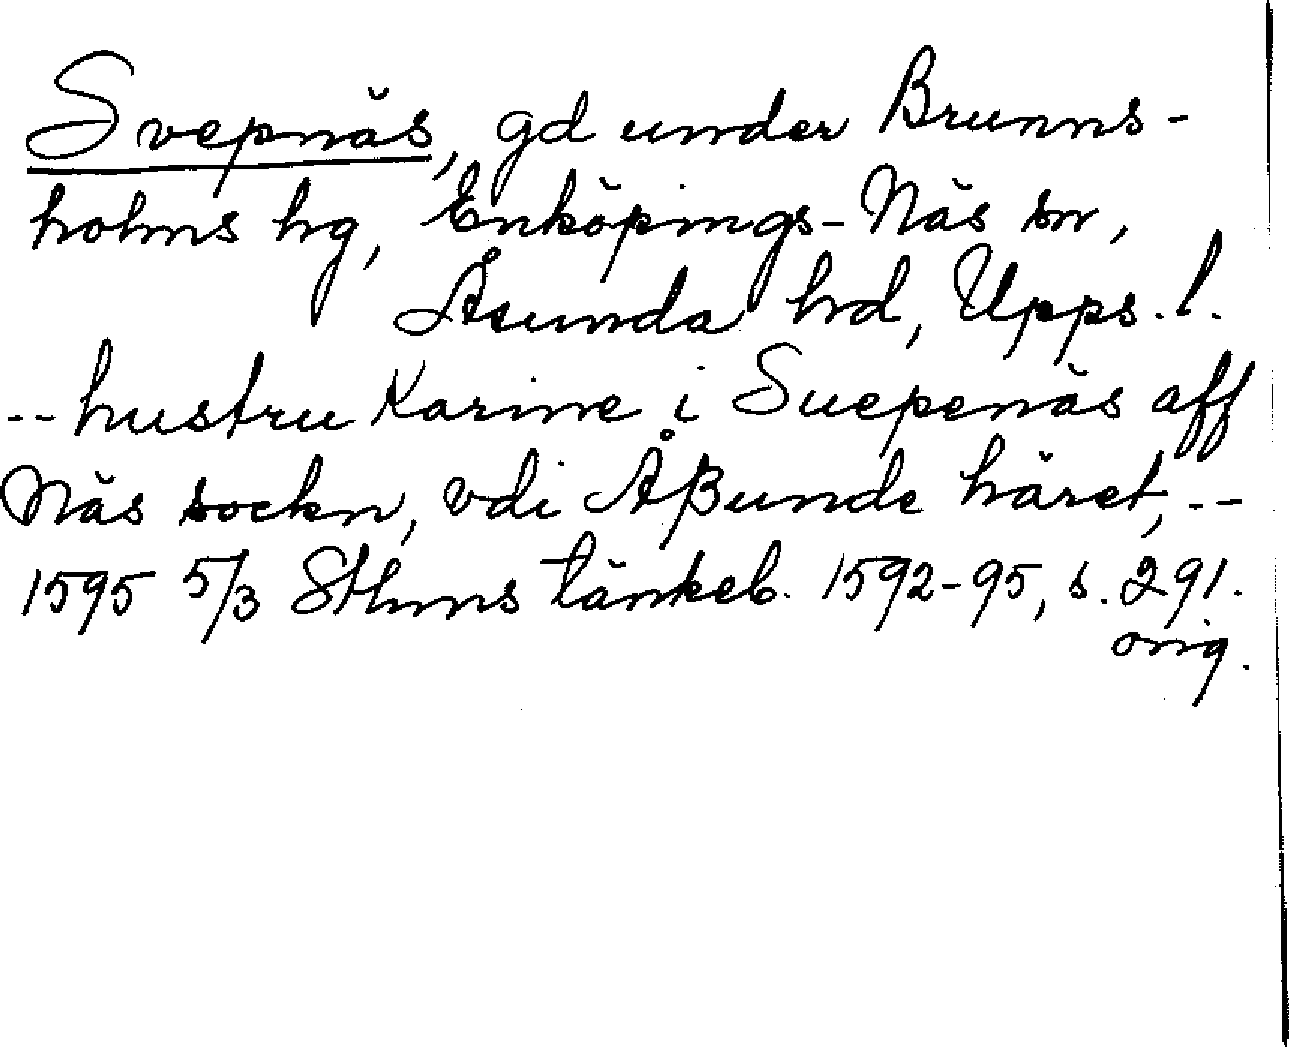 Svepnäs, gd under Brunns-
holms hg, Enköpings-Näs sn,
Åsunda hd, Upps. l.
-- hustru Karine i Suepenäs aff
Näs sockn, vdi Åßunde häret, --
1595 5/3 Sthms tänkeb. 1592-95, s. 291.
orig.